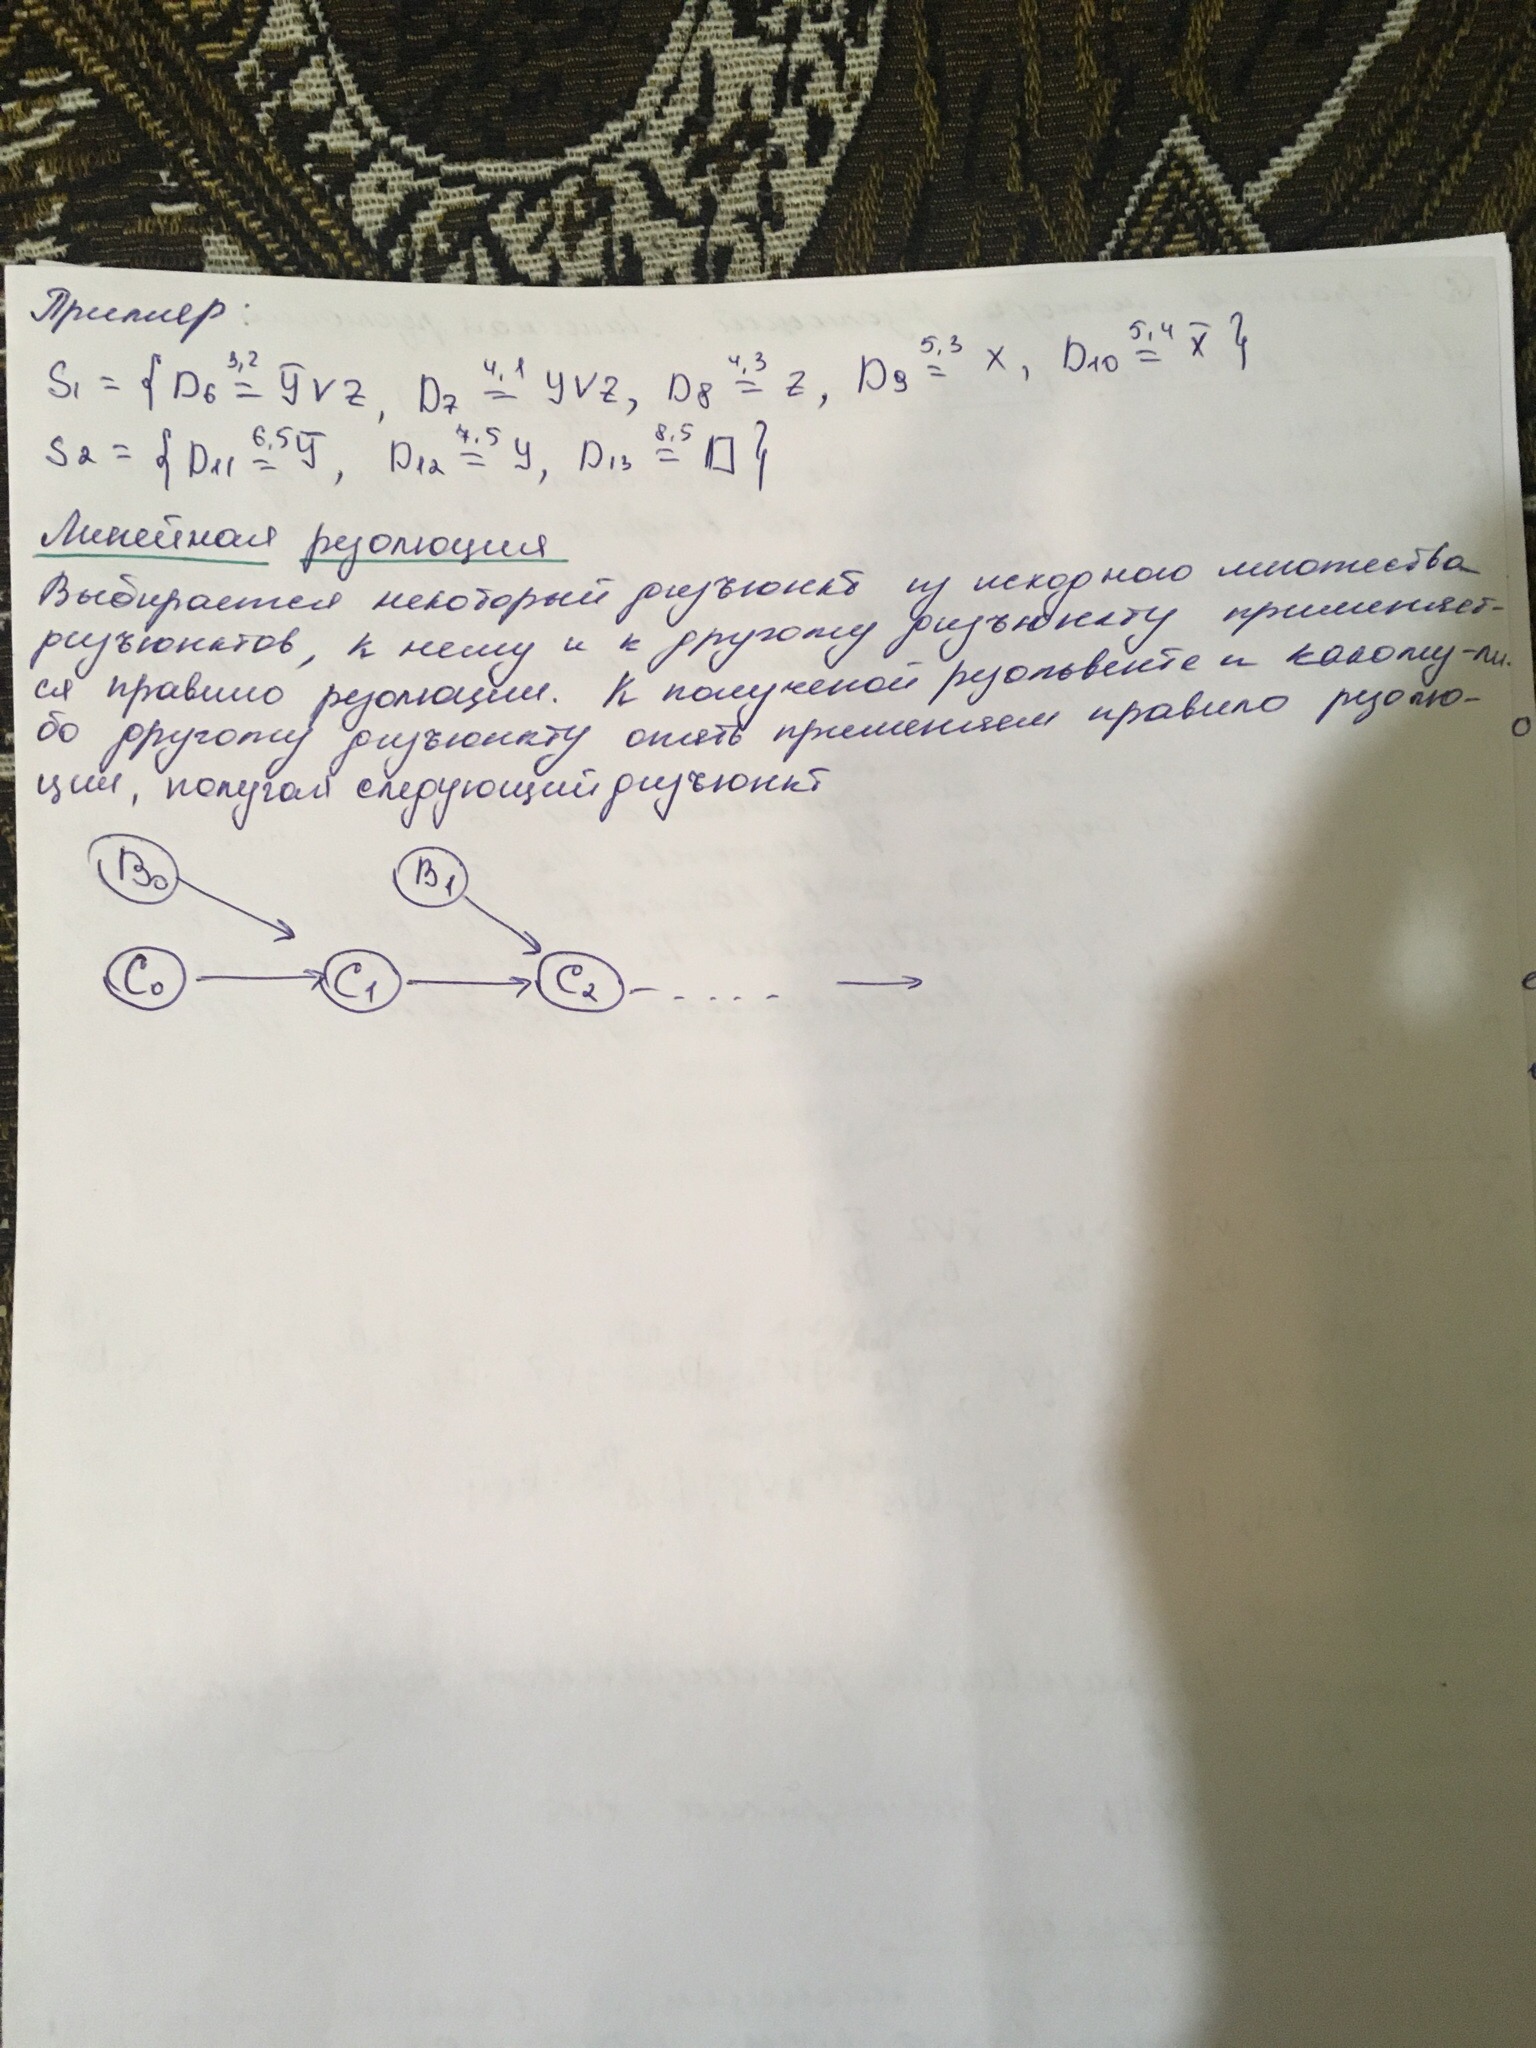 Пример:
S₁ = { D₆ 3,2= ȳ∨z, D₇ 4,1= y∨z, D₈ 4,3= z, D₉ 5,3= x, D₁₀ 5,4= x̄ }
S₂ = { D₁₁ 6,5= ȳ, D₁₂ 7,5= y, D₁₃ 8,5= □ }
Линейная резолюция
Выбирается некоторый дизъюнкт из исходного множества
дизъюнктов, к нему и к другому дизъюнкту применяет-
ся правило резолюции. К полученой резольвенте и какому-ли-
бо другому дизъюнкту опять применяем правило резолю-
ции, получая следующий дизъюнкт
B₀ B₁
C₀ C₁ C₂ - ....